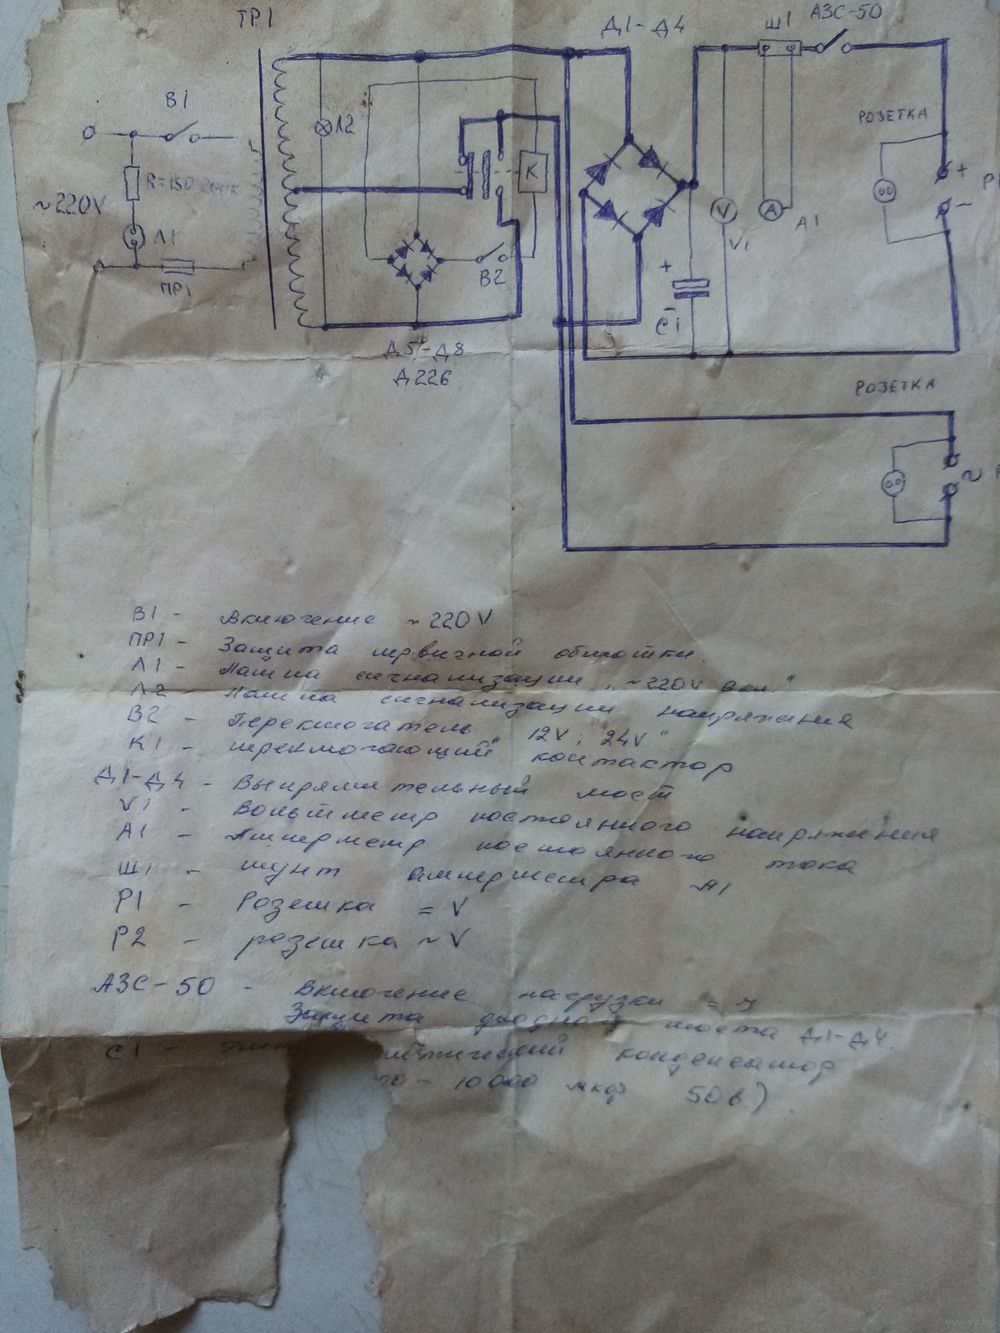 ТР1
Д1-Д4
Ш1
АЗС-50
В1
Л2
РОЗЕТКА
К
+
R=150
~220V
Л1
V
А
А1
V1
Р
-
В2
ПР1
+
-
С1
Д5-Д8
Д226
РОЗЕТКА
~
В1 - Включение ~220V
ПР1 - Защита первичной обмотки.
Л1 - Лампа сигнализации „~220V вкл"
Л2 - Лампа сигнализации напряжения
В2 - Переключатель „12V; 24V"
К1 - переключающий контактор
Д1-Д4 - Выпрямительный мост
V1 - Вольтметр постоянного напряжения
А1 - Амперметр постоянного тока
Ш1 - шунт амперметра А1
Р1 - Розетка = V
Р2 - розетка ~ V
АЗС-50 - Включение нагрузки =
Защита диодного моста Д1-Д4.
С1 - конденсатор
- 10000 мкф 50в.)
www.ay.by